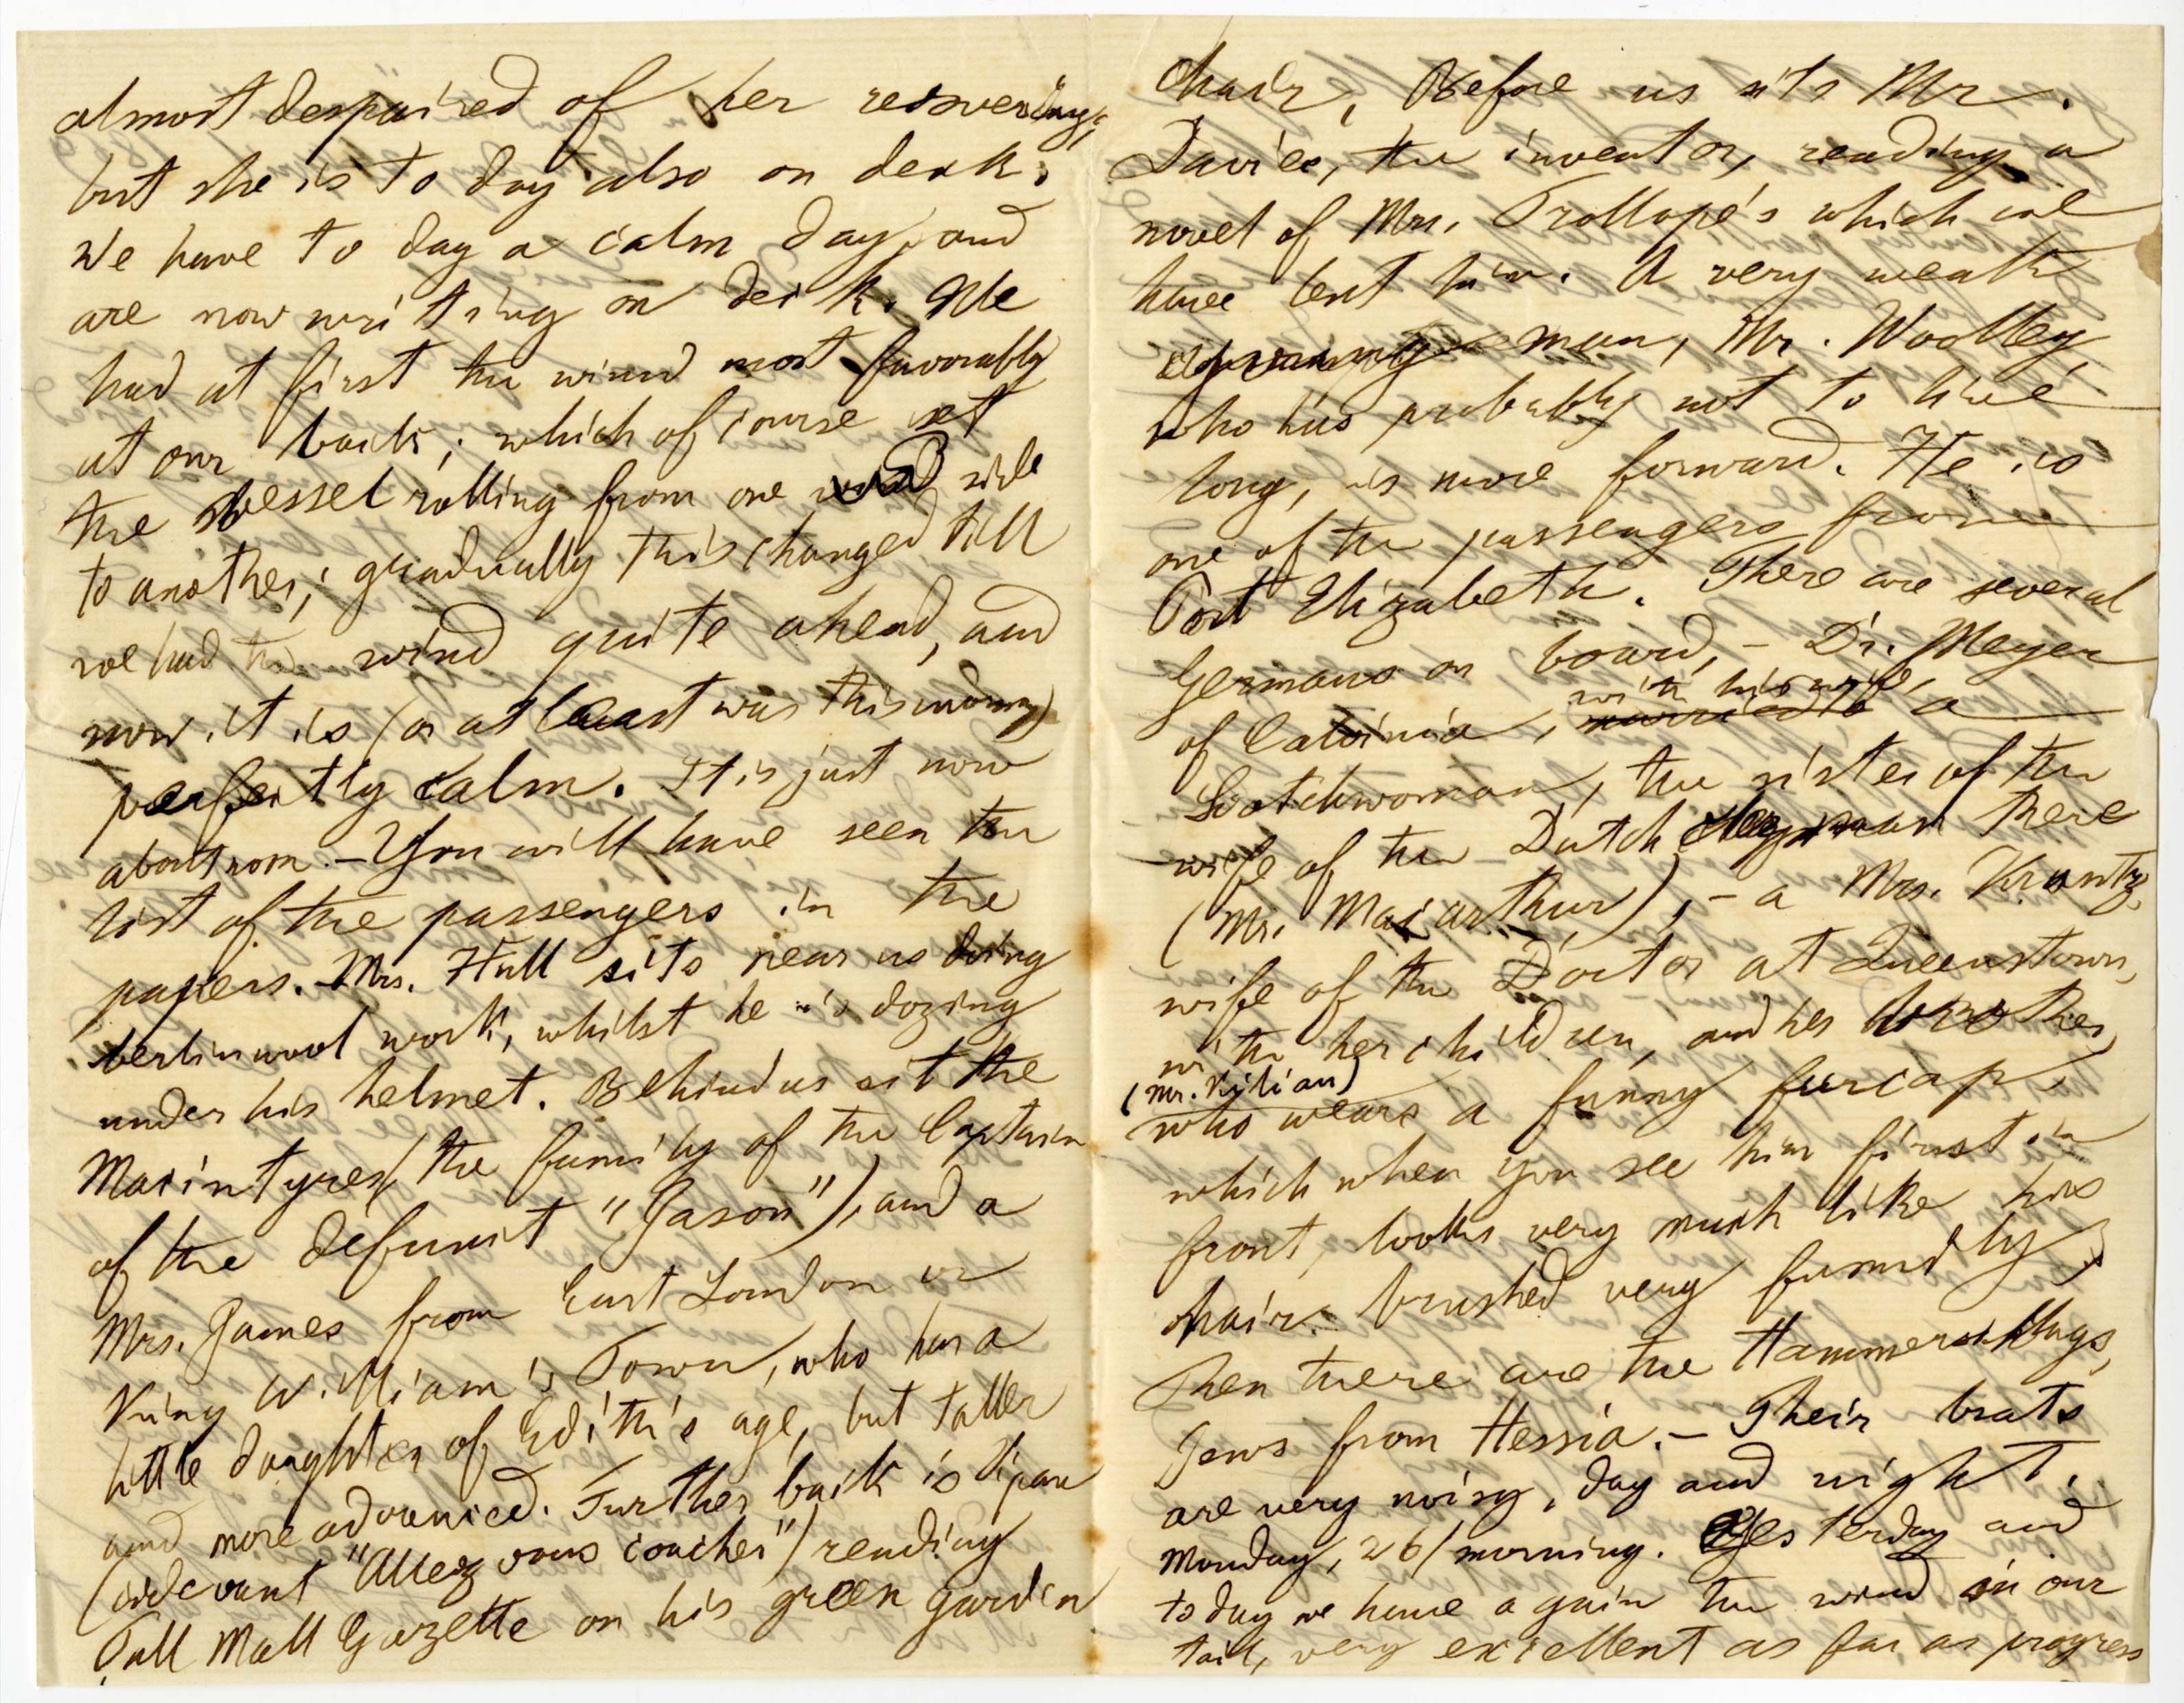 almost despaired of her recovering,
but she is to day also on deck.
We have to day a calm day, and
are now writing on deck. We
had at first the wind most favorably
at our backs; which of course set
the vessel rolling from one side
to another; gradually this changed till
we had the wind quite ahead, and
now it is (or at least was this morning)
perfectly calm. It is just now
about noon. – You will have seen the
list of the passengers in the
papers. Mrs. Hull sits near us doing
berlinwool work, whilst he is dozing
under his helmet. Behind us sit the
Macintyres (the family of the Captain
of the defunct "Jason"), and a
Mrs. James from East London or
King William's Town, who has a
little daughter of Edith's age, but taller
and more advanced. Further back is
(cidevant "Allez vous coucher") reading
Pall Mall Gazette on his green garden
chair, Before us sits Mr.
Davies, the inventor, reading a
novel of Mrs. Trollope's which we
have lent him. A very weak
man, Mr. Woolley,
who has probably not to live
long, is more forward. He is
one of the passengers from
Port Elizabeth. There are several
Germans on board, – Dr. Meyer
of Calvinia, married to with his wife, a
Scotchwoman, the sister of the
wife of the Dutch clergyman there
(Mr. Macarthur), – a Mrs. Krantz,
wife of the Doctor at Queenstown,
with her children, and her brother
(Mr. Kilian)
who wears a funny furcap,
which when you see him first in
front, looks very much like his
hair brushed very funnily.
Then there are the Hammerschlags,
Jews from Hessia. – Their brats
are very noisy, day and night.
Monday, 26/ morning. Yesterday and
to day we have again the wind in our
tail, very excellent as far as progress